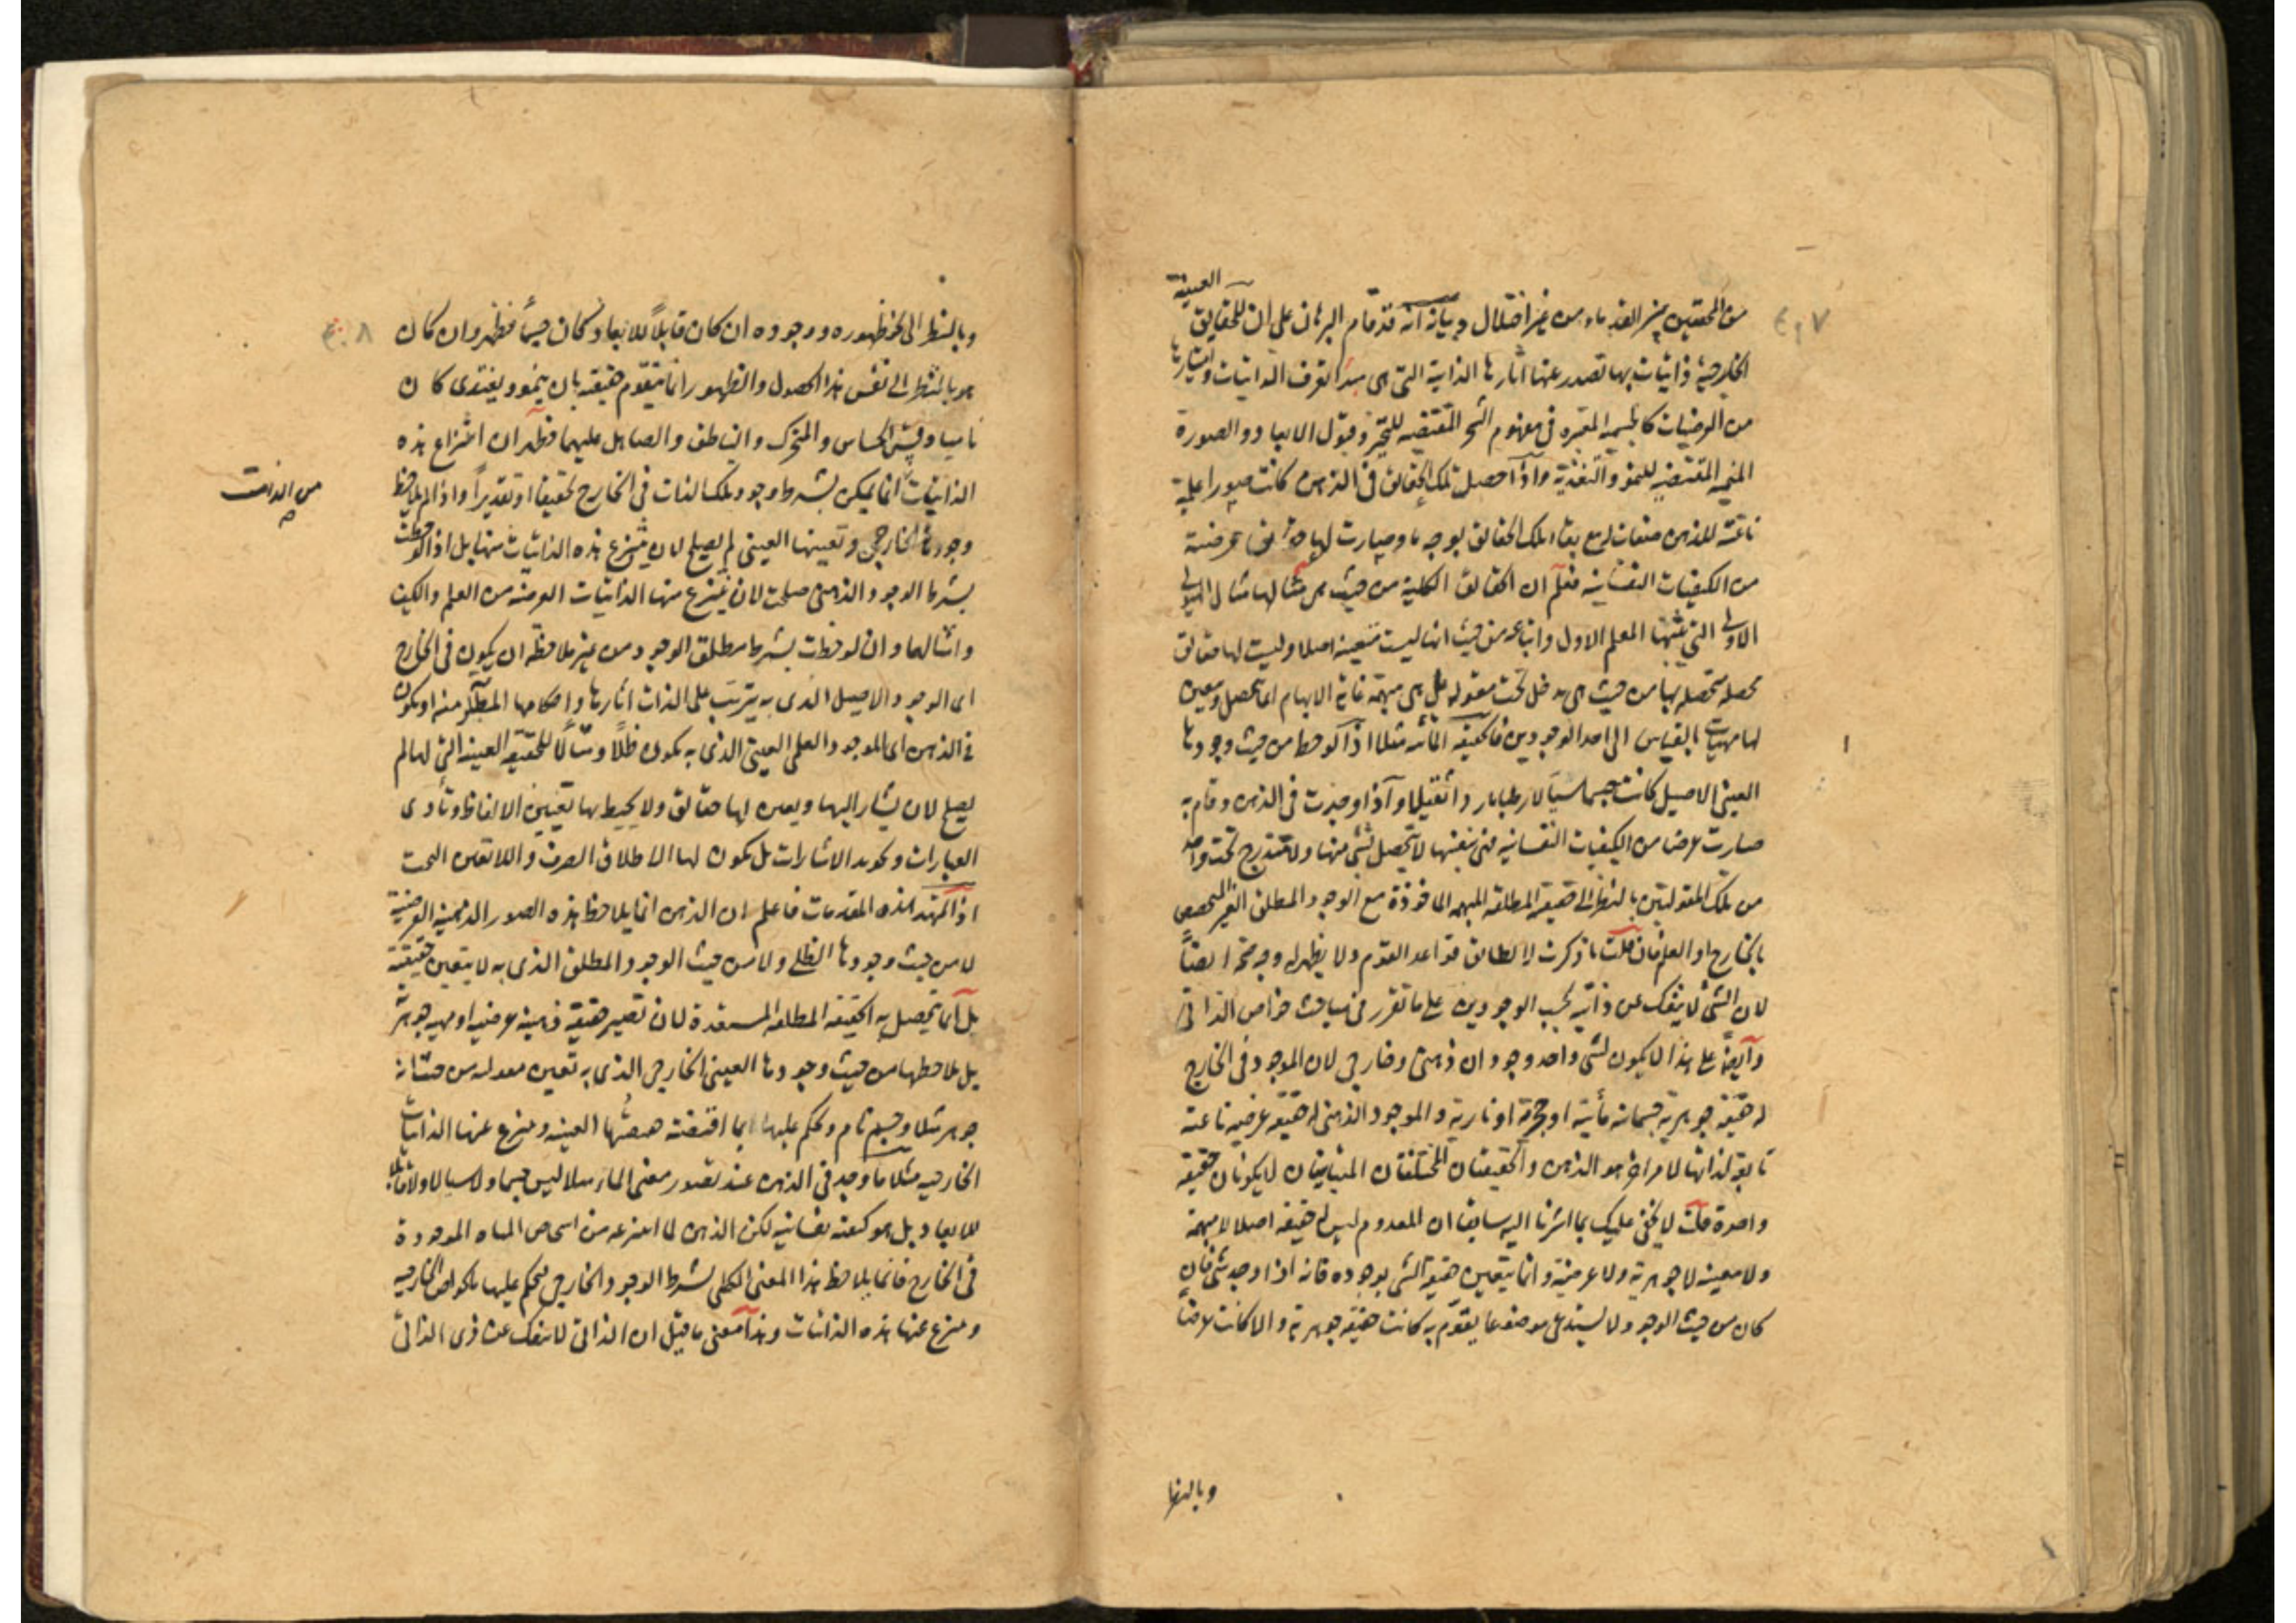 العينية
من المحققين من القدماء من غير اختلال وبيانه انه قد قام البرهان على ان للحقايق
الخارجية ذاتيات بها تصدر عنها اثارها الذاتية التى هى مبدأ تعرف الذاتيات وامتيازها
من العرضيات كالجسمية المعتبرة فى مفهوم الشجر المقتضية للتحيز وقبول الابعاد والصورة
المقتضية للنمو والتغذية واذا حصل تلك الحقايق فى الذهن كانت صورا علمية
ناعتة للذهن صفات له مع بقاء تلك الحقايق بوجه ما وصارت لها عرضية
من الكيفيات النفسانية فعلم ان الحقايق الكلية من حيث هى مثالها مثال الهيولى
الاولى التى المعلم الاول واتباعه من حيث انها ليست متعينة اصلا وليست لها حقايق
محصلة متحصلة بها من حيث هى تدخل تحت مقولة بل هى مبهمة غاية الابهام انما تحصل وتعين
لها مهيات بالقياس الى احد الوجودين فالحقيقة المائية مثلا اذا لوحظ من حيث وجودها
العينى الاصيل كانت جسما سيالا رطبا باردا ثقيلا واذا وجدت فى الذهن وقام به
صارت عرضا من الكيفيات النفسانية فى نفسها لا يتحصل شىء منها ولا تندرج تحت واحد
من تلك المقولتين بالنظر الى حقيقة المطلقة المبهمة الماخوذة مع الوجود المطلق الغير المتخصص
بالخارج او العلم فان قلت ما ذكرت لا يطابق قواعد القوم ولا يظهر له وجه صحة ايضاً
لان الشىء لا ينفك عن ذاتيه بحسب الوجودين على ما تقرر فى مباحث خواص الذاتى
وايضاً على هذا لا يكون لشىء واحد وجودان ذهنى وخارجى لان الموجود فى الخارج
له حقيقة جوهرية جسمانية مائية او حجرية او نارية والموجود الذهنى له حقيقة عرضية ناعتة
تابعة لذاتها لامر اخر هو الذهن والحقيقتان المختلفتان المتباينتان لا يكونان حقيقة
واحدة قلت لا يخفى عليك بما اشرنا اليه سابقا ان المعدوم ليس له حقيقة اصلا لا مبهمة
ولا معينة لا جوهرية ولا عرضية وانما يتعين حقيقة الشىء بوجوده فانه اذا وجد شىء فان
كان من حيث الوجود لا يستدعى موضوعا يقوم به كانت حقيقة جوهرية والا كانت عرضا
وبالنظر
وبالنظر الى نحو ظهوره ووجوده ان كان قابلاً للابعاد كان جسماً فظهر وان كان
هو بالنظر الى نفس هذا الحصول والظهور انما يتقوم حقيقة بان ينمو ويغتذى كان
ناميا وقس الحساس والمتحرك والناطق والصاهل عليهما فظهر ان انتزاع هذه
الذاتيات انما يمكن بشرط وجود تلك الذات فى الخارج تحقيقا او تقديراً واذا لم يلاحظ
من الذات
وجودها الخارجى وتعينها العينى لم يصلح لان ينتزع هذه الذاتيات منها بل اذا لوحظت
بشرط الوجود الذهنى صلحت لان ينتزع منها الذاتيات العرضية من العلم والكيف
وامثالهما وان لوحظت بشرط مطلق الوجود من غير ملاحظة ان يكون فى الخارج
اى الوجود الاصيل الذى به يترتب على الذات اثارها واحكامها منه او يكون
فى الذهن اى الموجود العلمى العينى الذى به يكون ظلاً ومثالاً للحقيقة العينية التى لها لم
يصلح لان يشار اليها ويعين لها حقايق ولا يحيط بها تعيين الالفاظ وتأدى
العبارات وتحويه الاشارات بل يكون لها الاطلاق الصرف واللاتعين البحت
اذا تمهد هذه المقدمات فاعلم ان الذهن انما يلاحظ هذه الصور الذهنية العرضية
لا من حيث وجودها الظلى ولا من حيث الوجود المطلق الذى به لا يتعين حقيقة
بل انما يتحصل به الحقيقة المطلقة المستعدة لان تصير حقيقة ذهنية عرضية او مهية جوهر
بل يلاحظها من حيث وجودها العينى الخارجى الذى به تعين
جوهر مثلا وجسم نام ويحكم عليها بما اقتضته العينية وينتزع عنها الذاتيات
الخارجية مثلا ما وجد فى الذهن عند تصور معنى الماء مثلا ليس جسما ولا سيالا ولا قابلا
للابعاد بل هو كيفية نفسانية لكن الذهن لما انتزعه من اشخاص المياه الموجودة
فى الخارج فانما يلاحظ هذا المعنى الكلى بشرط الوجود الخارجى فيحكم عليها بالخواص الخارجية
وينزع عنها هذه الذاتيات وهذا معنى ما قيل ان الذاتى لا ينفك عن ذى الذاتى